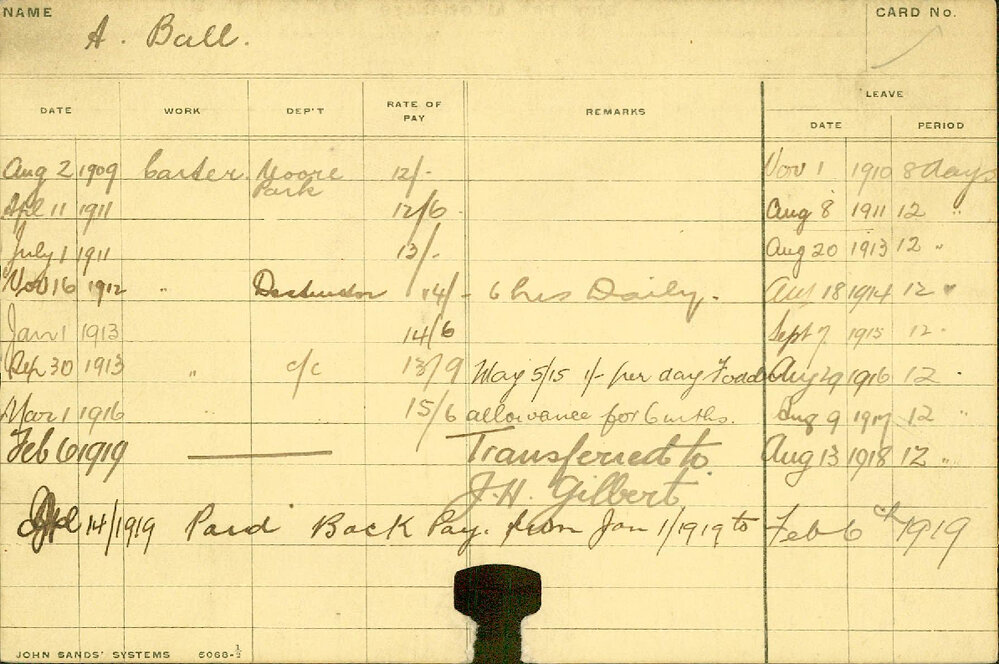 NAME
CARD No.
A. Ball.
LEAVE
DATE WORK DEP'T RATE OF PAY REMARKS DATE PERIOD
Aug 2 1909 Carter. Moore Park 12/- Nov 1 1910 8 days
Apl 11 1911 12/6 Aug 8 1911 12 "
July 1 1911 13/- Aug 20 1913 12 "
Nov 16 1912 " Destructor 14/- 6 hrs Daily. Aug 18 1914 12 "
Jan 1 1913 14/6 Sept 7 1915 12 "
Sep 30 1913 " c/c 13/9 May 5/15 1/- per day Fodd Aug 29 1916 12 "
Mar 1 1916 " 15/6 allowance for 6 mths. Aug 9 1917 12 "
Feb 6 1919 Transferred to Aug 13 1918 12 "
J.H. Gilbert
Apl 14/1919 Paid Back Pay. from Jan 1/1919 to Feb 6 1919
JOHN SANDS' SYSTEMS 5068-½